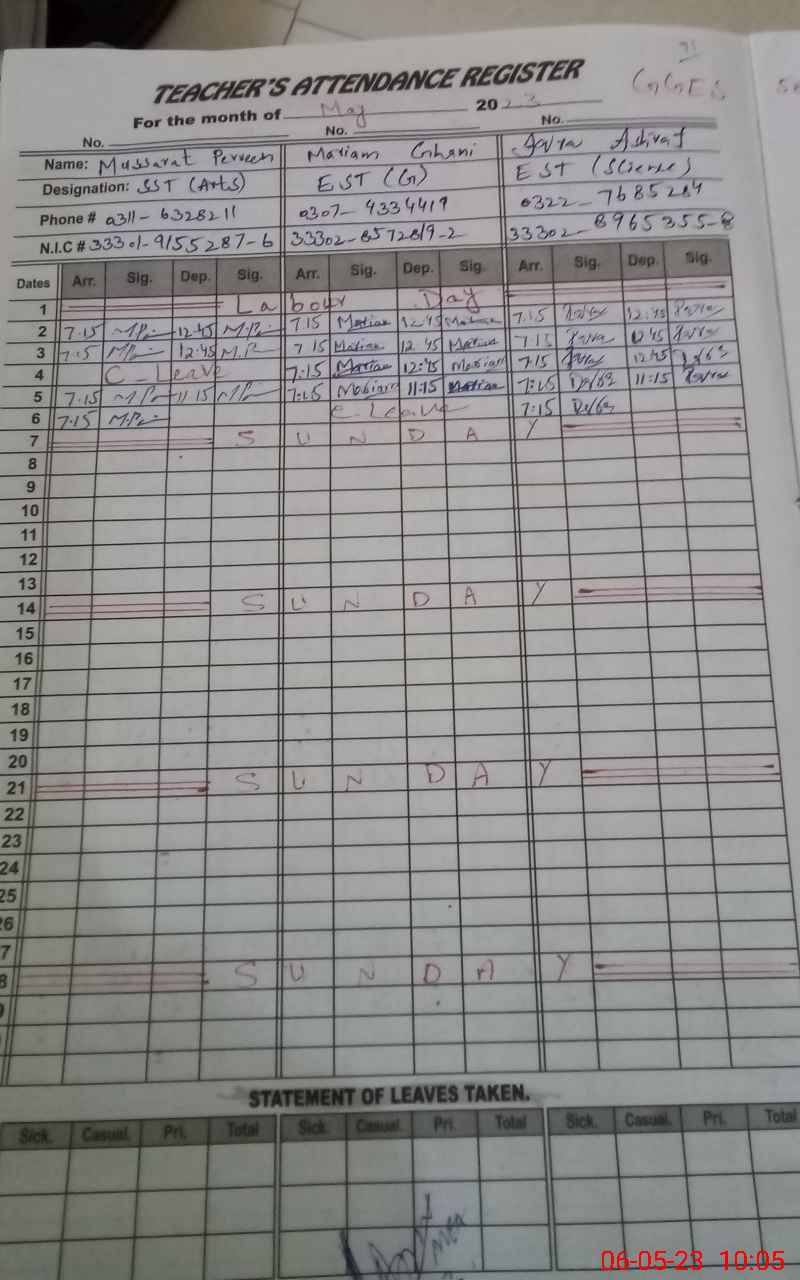 71
TEACHER'S ATTENDANCE REGISTER
GGES
For the month of May 2023
No. No. No.
Name: Mussarat Perveen Mariam Ghani Ashraf
Designation: SST (Arts) EST (G) EST (Science)
Phone # 0311-6328211 0307-4334419 0322-7685284
N.I.C # 33301-9155287-6 33302-8572819-2 33302-8965355-8
Dates Arr. Sig. Dep. Sig. Arr. Sig. Dep. Sig. Arr. Sig. Dep. Sig.
1 Labour Day
2 7.15 12:45 7.15 Mariam 12:45 Mariam 7.15 12:45
3 7:15 12:45 7 15 Mariam 12.45 Mariam 7 15 12 45
4 C-Leave 7:15 Mariam 12:45 Mariam 7.15 12:45
5 7.15 11 15 7:15 Mariam 11:15 Mariam 7:15 11:15
6 7.15 C. Leave 7:15
7 SUNDAY
8
9
10
11
12
13
14 SUNDAY
15
16
17
18
19
20
21 SUNDAY
22
23
24
25
26
7
8 SUNDAY
STATEMENT OF LEAVES TAKEN.
Sick. Casual. Pri. Total Sick. Casual. Pri. Total Sick. Casual. Pri. Total
06-05-23 10:05